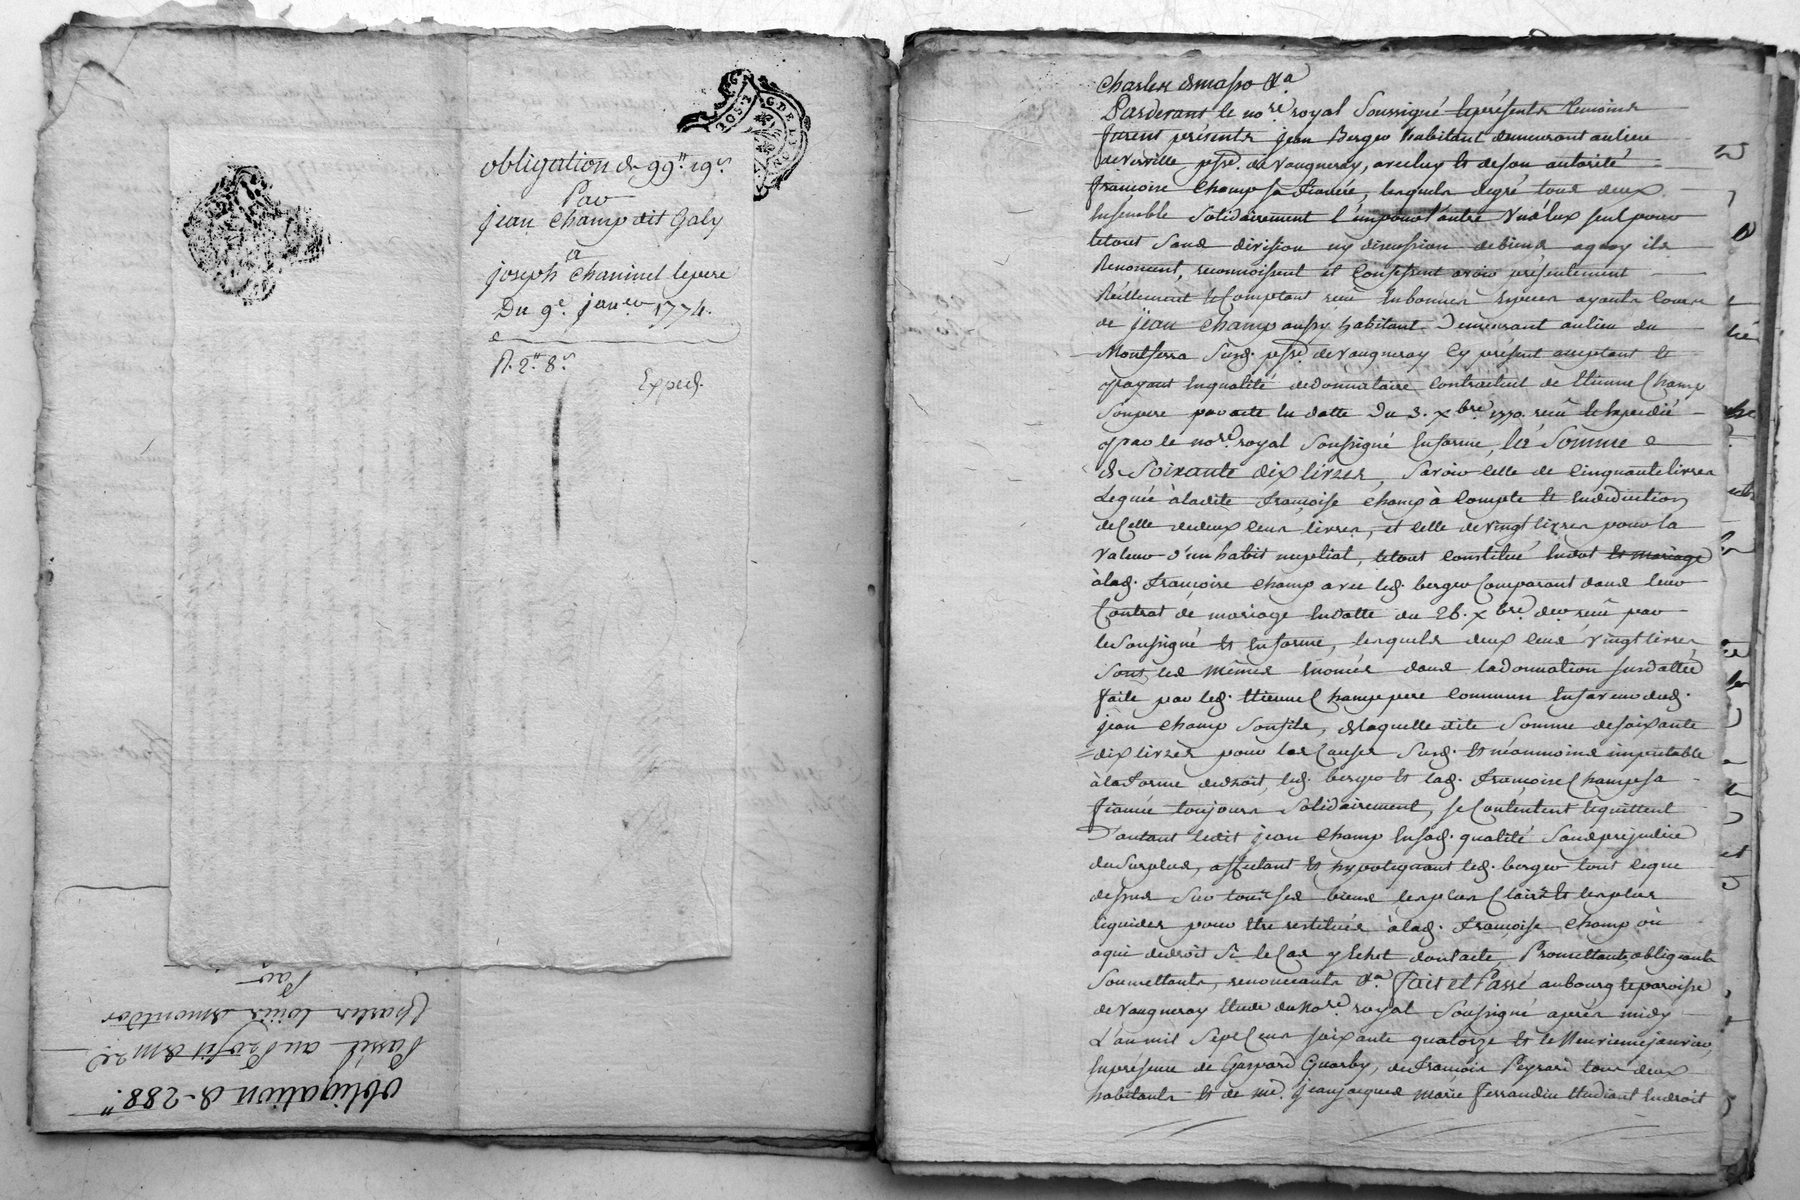 obligation de 99ᴴ 19ˢ
Par
jean champ dit Galy
a
joseph Chaninel le pere
Du 9ᵉ janᵉʳ 1774.
R. 2ᴴ 8ˢ
Exped.
obligation de 288.ᴴ
Passée au Profit de Mʳᵉ
Charles loüis demontdor
Par
GDELYON
Charles demasso &ᵃ
Pardevant le noʳᵉ royal Soussigné & présents temoins
furent présents jean Berger habitant demeurant au lieu
de Verville pssᵉ. de Vaugneray, avec luy & de son autorité
françoise Champ sa fiancée, lesquels de gré tous deux
Ensemble Solidairement l'un pour l'autre Un d'Eux seul pour
le tout Sans division ny discussion de biens aquoy ils
Renoncent, reconnoissent et Confessent avoir présentement
Réellement & Comptant reçu En bonnes Espèces ayants Cours
de jean Champ aussy habitant Demeurant au lieu du
Montferra Susd. pssᵉ. de Vaugneray Cy présent acceptant &
payant En qualité de donnataire Contractuel de Etienne Champ
Son pere par acte En datte Du 3. xbʳᵉ 1770. reçû & Expedié
par le noʳᵉ. royal Soussigné En forme, la Somme
de Soixante dix livres, Savoir Celle de Cinquante livres
Leguée à ladite françoise Champ à Compte & En deduction
de Celle de deux Cens livres, et Celle de Vingt livres pour la
Valeur d'un habit nuptial, le tout Constitué En dot & mariage
à lad. françoise Champ avec led. berger Comparant dans leur
Contrat de mariage En datte du 26. xbʳᵉ. dᵉʳ. reçû par
le Soussigné & En forme, lesquels deux Cens Vingt livres
Sont les mêmes Enoncés dans la donnation Susdattée
faite par led. Etienne Champ pere Commun En faveur dud.
jean Champ Son fils, de laquelle dite Somme de soixante
dix livres pour les Causes Susd. & néanmoins imputable
à la forme du droit, led. berger & lad. françoise Champ sa
fiancée toujours Solidairement, se Contentent & quittent
D'autant ledit jean Champ En sad. qualité Sans préjudice
du Surplus, affectant & hypotequant led. berger tout ce que
dessus Sur tous ses biens les plus Clairs & les plus
liquides pour Etre restituée à lad. françoise Champ où
a qui de droit Si le Cas y Echet dont acte, Promettants, obligeants
Soumettants, renonceants &ᵃ fait et Passé au bourg & paroisse
de Vaugneray Etude du Noʳᵉ. royal Soussigné après midy
L'an mil Sept Cens soixante quatorze & le Neuvieme janvier,
En présence de Gaspard Guerby, de françois Peyrard tous deux
habitants & de mᵉ. jean jacques marie ferrandin Etudiant En droit